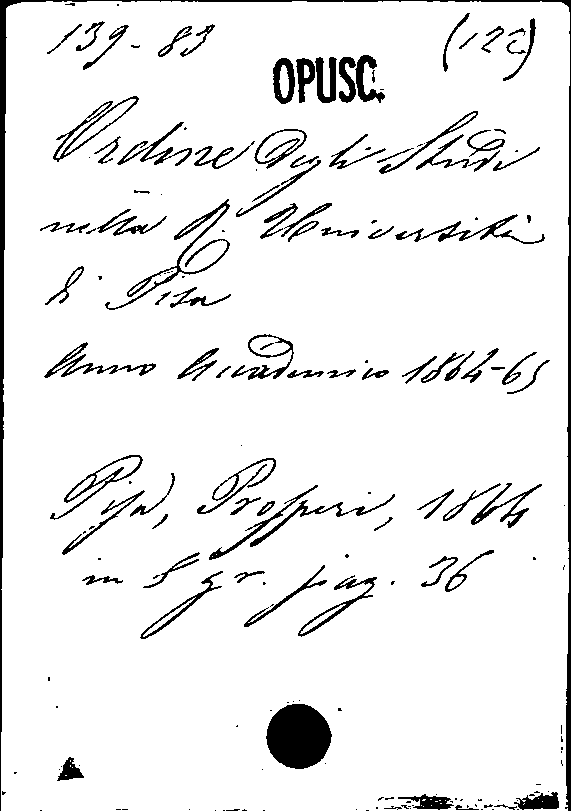 139-83 (122)
OPUSC.
Ordine Degli Studi
nella R. Università
di Pisa
Anno Accademico 1864-65
Pisa, Prosperi, 1864
in 8 gr. pag. 36